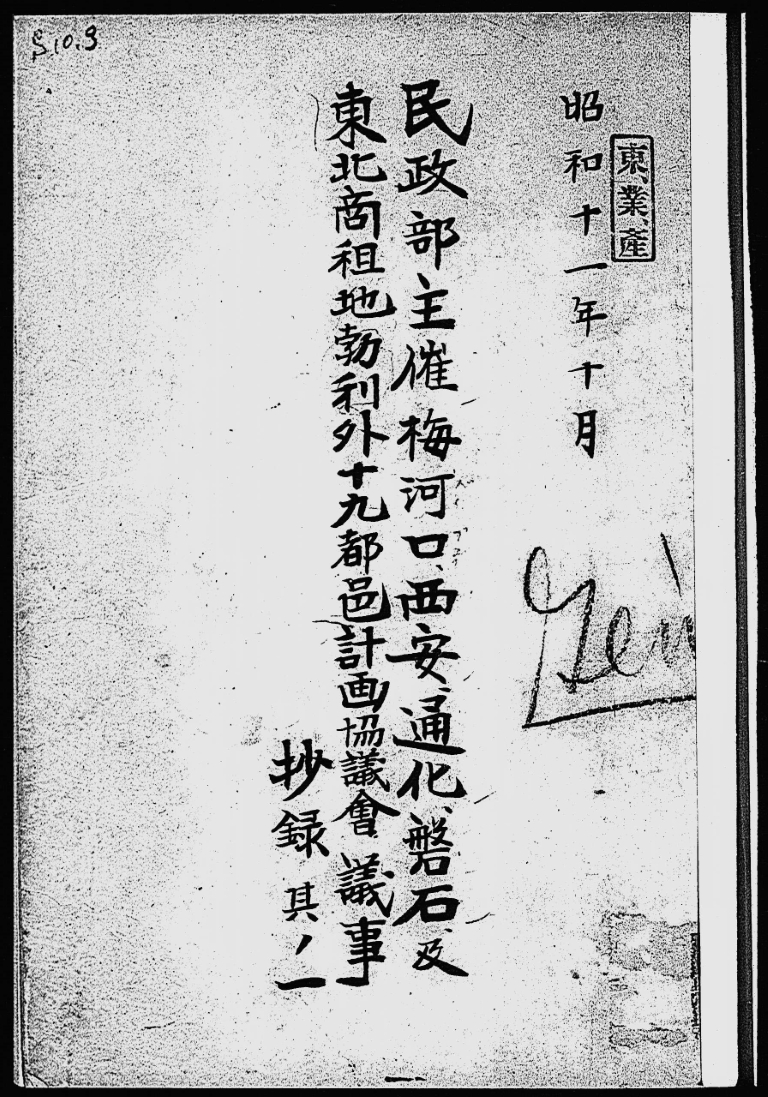 東、業、產
昭和十一年十月
民政部主催梅河口、西安、通化、磐石、及
東北商租地勃利外十九都邑計画協議會議事
抄録其ノ一
S10.9